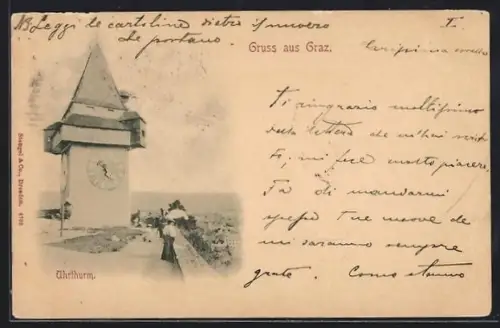 NB Leggi le cartoline dietro il numero
che portano.
Gruss aus Graz.
Carissima
Ti ringrazio moltissimo
della lettera che m'hai
ti, mi fece molto piacere,
Fa di mandarmi
spesso tue nuove che
mi saranno sempre
grate. Come stanno
Stengel & Co., Dresden. 6709
Uhrthurm.